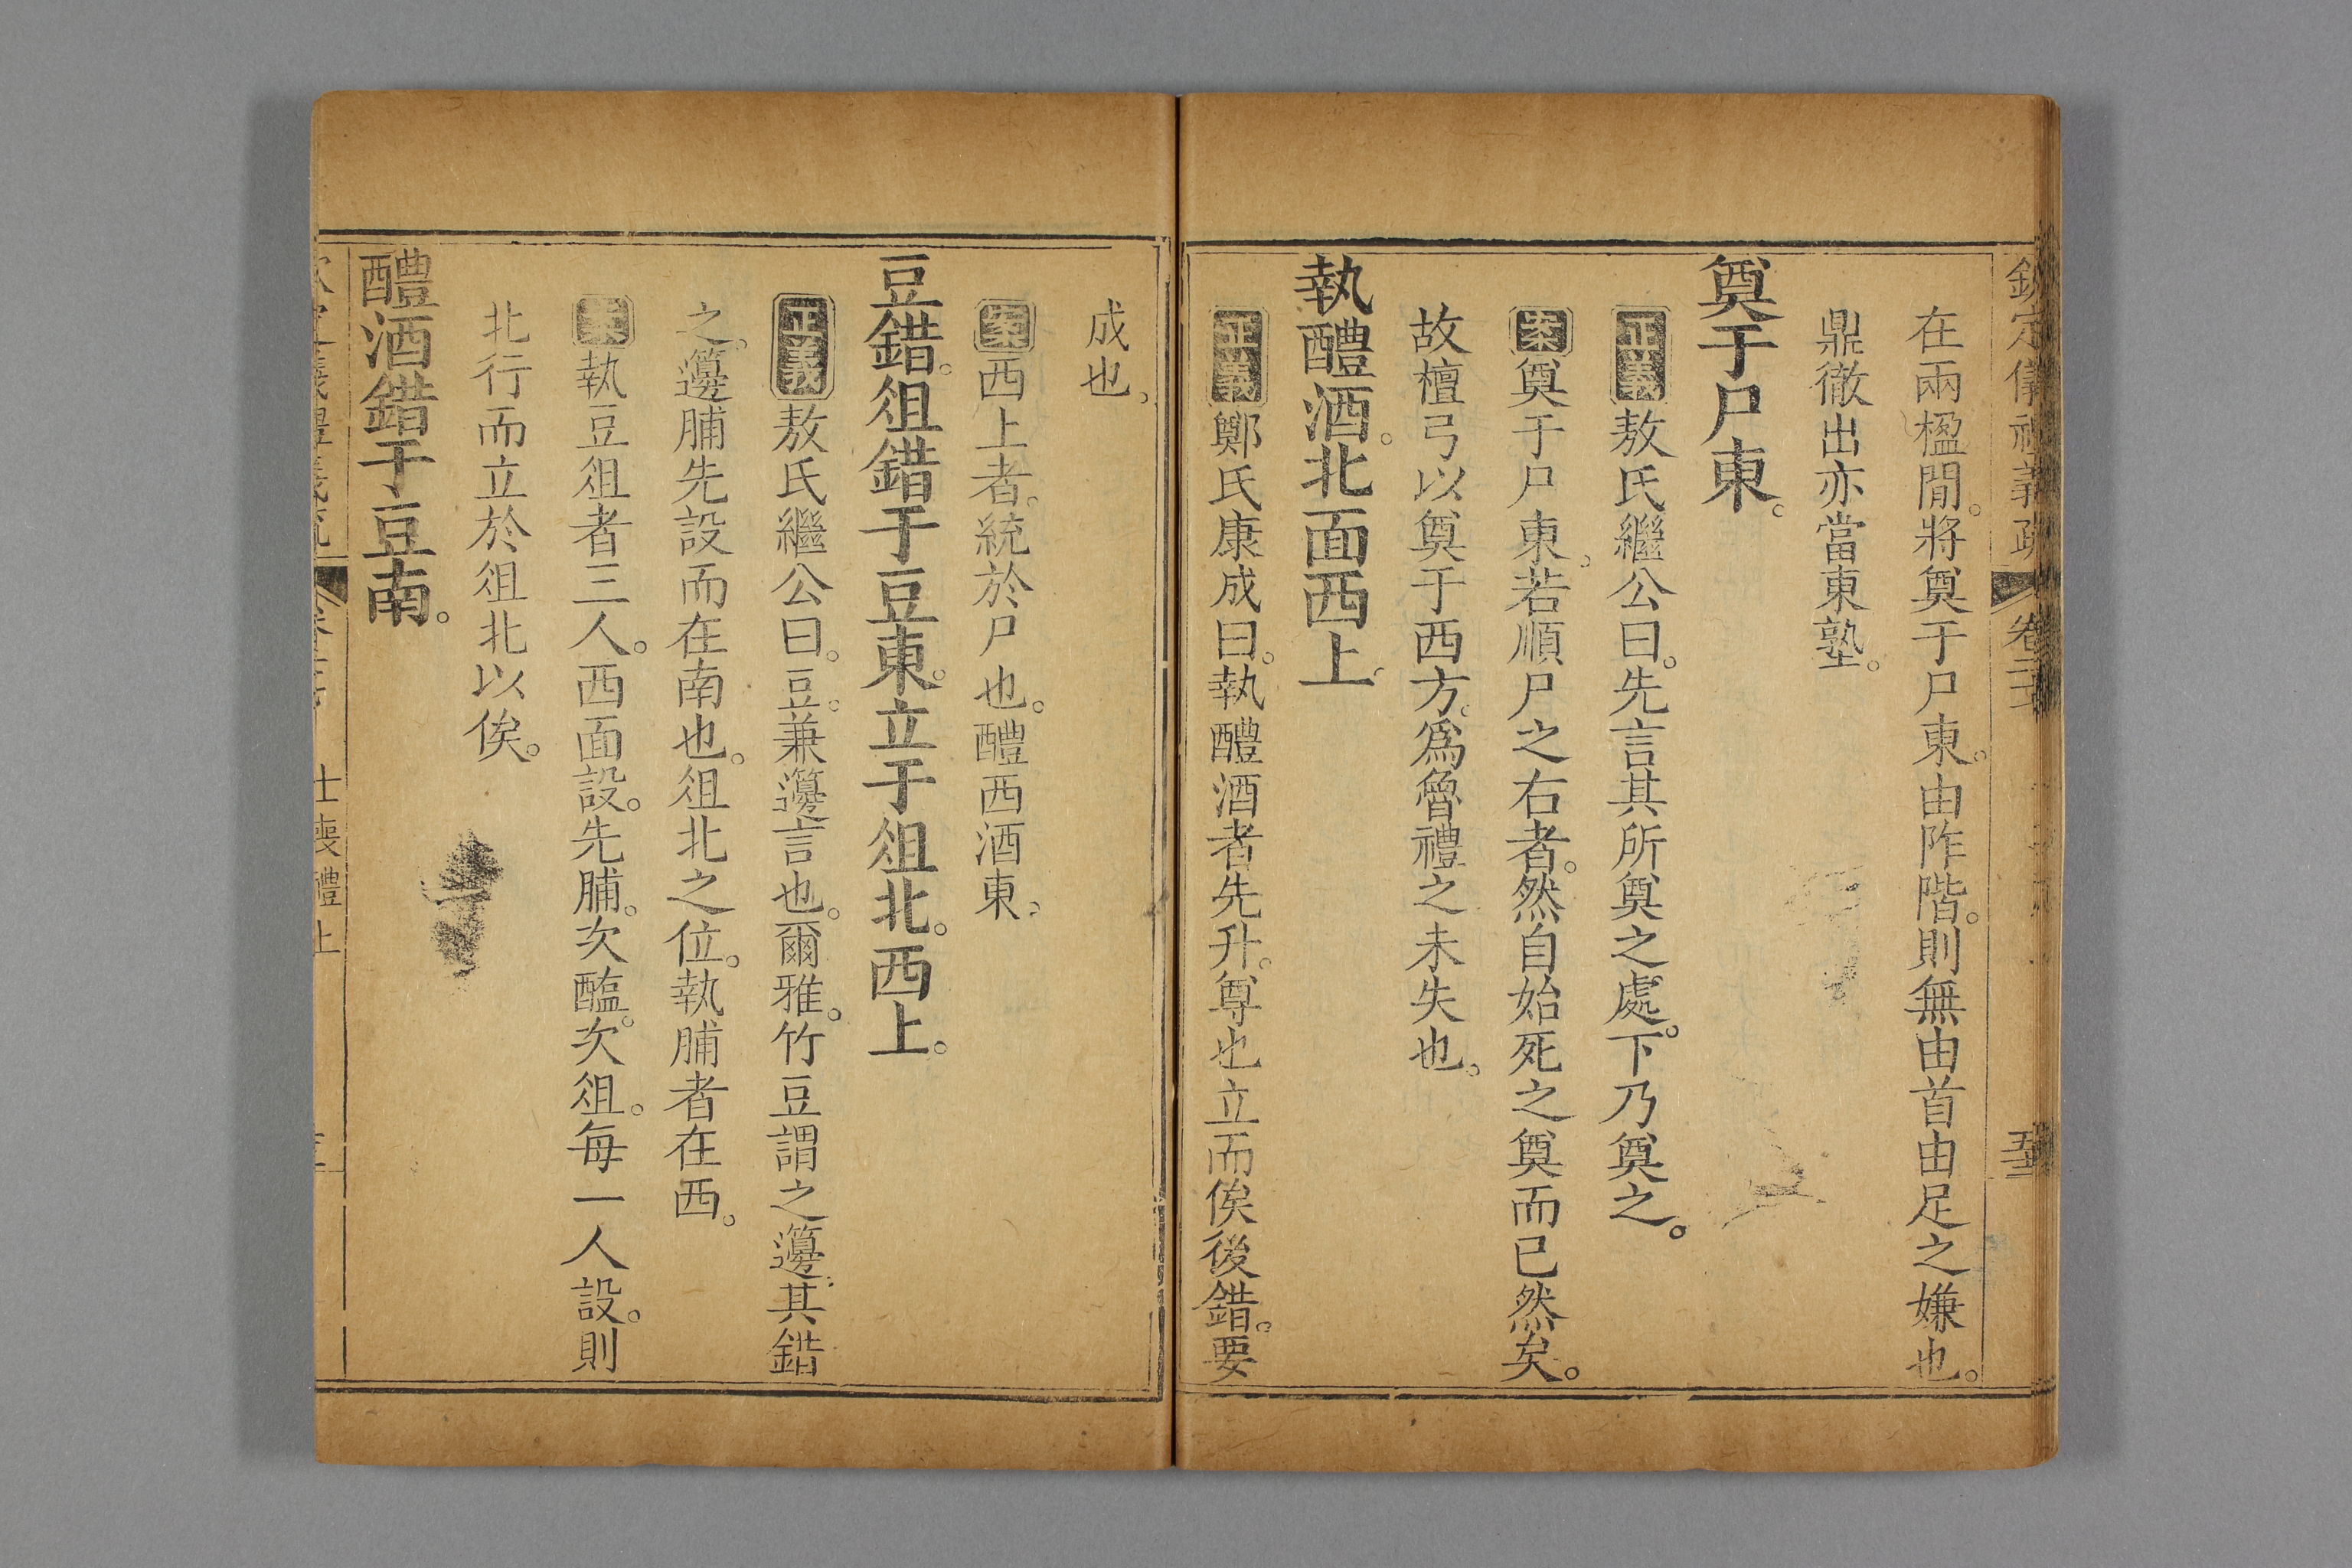 欽定儀禮義疏 卷二十 
在兩楹閒。將奠于尸東。由阼階。則無由首由足之嫌也。
鼎徹出亦當東塾。
奠于尸東。
正義敖氏繼公曰。先言其所奠之處。下乃奠之。
案奠于尸東。若順尸之右者。然自始死之奠而已然矣。
故檀弓以奠于西方。爲魯禮之未失也。
執醴酒。北面西上。
正義鄭氏康成曰。執醴酒者先升。尊也立而俟後錯。要
成也。
案西上者。統於尸也。醴西酒東。
豆錯。俎錯于豆東。立于俎北。西上。
正義敖氏繼公曰。豆。兼籩言也。爾雅。竹豆謂之籩。其錯
之。籩脯先設而在南也。俎北之位。執脯者在西。
案執豆俎者三人。西面設。先脯。次醢。次俎。每一人設。則
北行而立於俎北以俟。
醴酒錯于豆南。
士喪禮上